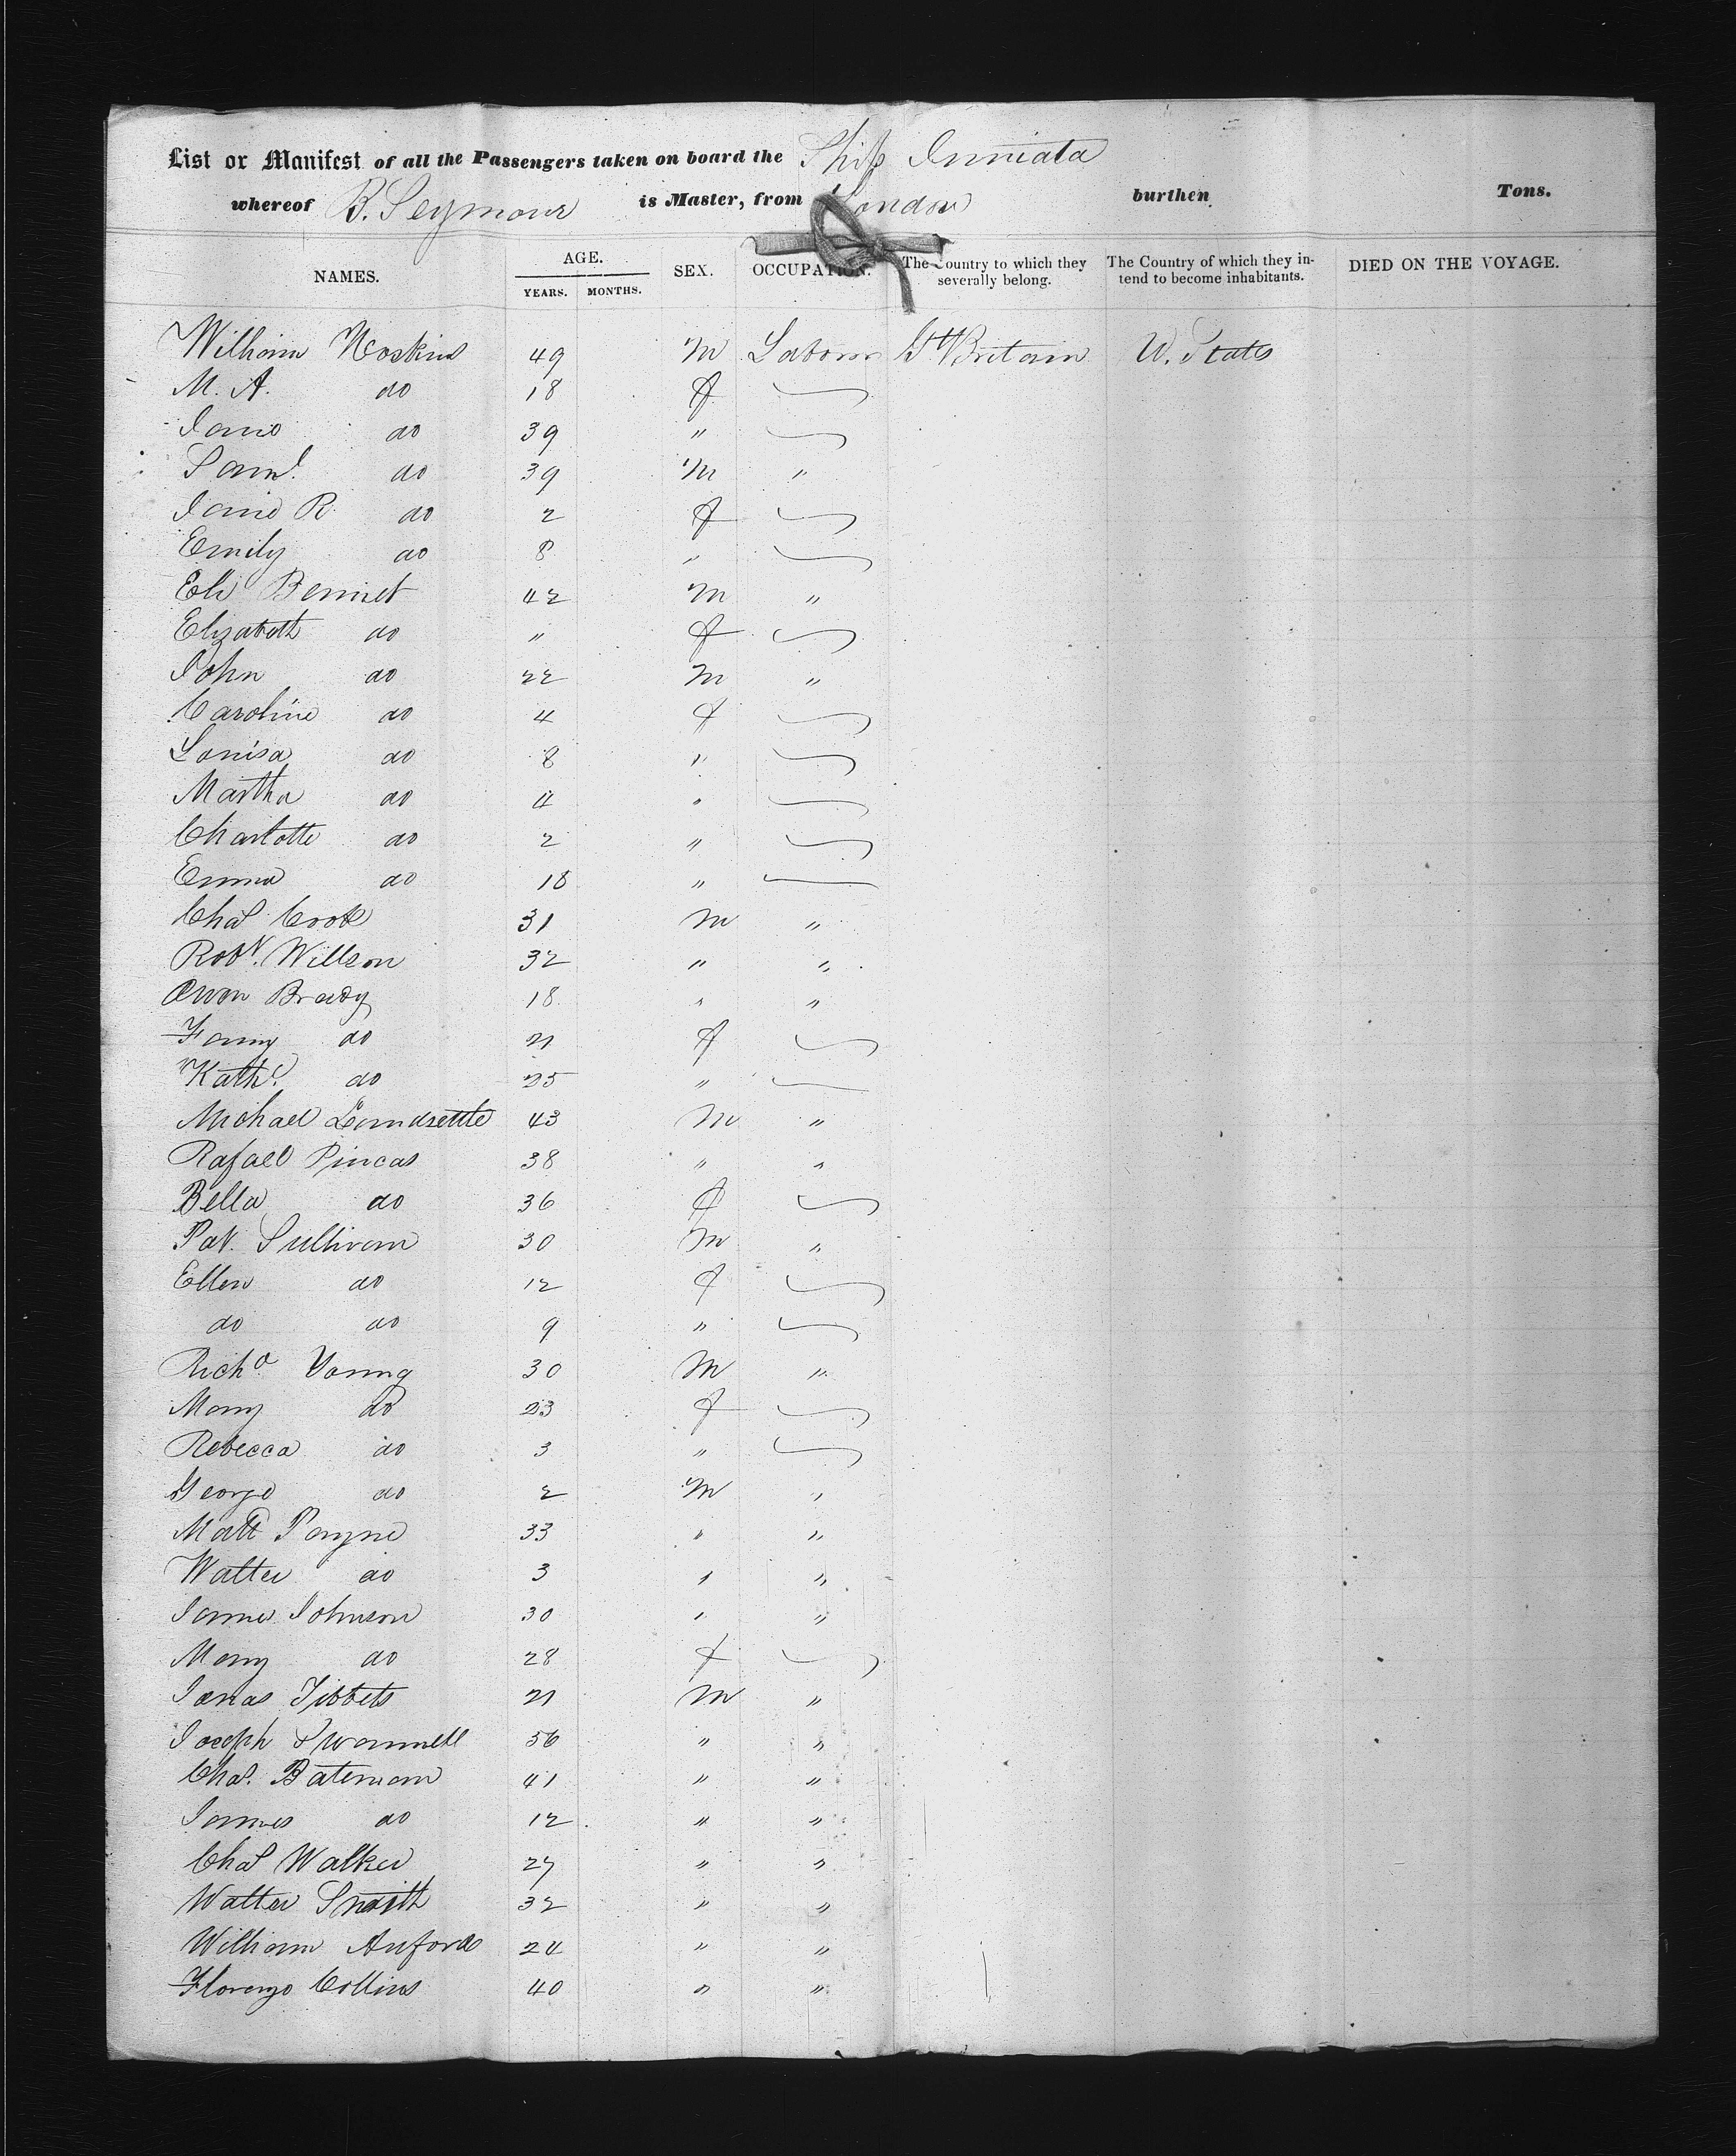 List or Manifest of all the Passengers taken on board the Ship
whereof B. Seymour is Master, from London burthen Tons.
NAMES. AGE. SEX. OCCUPATION. The Country to which they severally belong. The Country of which they intend to become inhabitants. DIED ON THE VOYAGE.
YEARS. MONTHS.
William Hoskins 49 M Labourer Gt Britain U. States
M. A. do 18 f
Jane do 39 "
Saml. do 39 M "
Jane R do 2 f
Emily do 8 "
Eli Bennet 42 M "
Elizabeth do " f
John do 22 M "
Caroline do 4 f
Louisa do 8 "
Martha do 4 "
Charlotte do 2 "
Emma do 18 "
Chas Cook 31 M "
Robt. Willson 32 " "
Owen Brady 18 " "
Fanny do 21 f
Kathe. do 25 "
Michael 43 M "
Rafael Pincas 38 " "
Bella do 36 f
Pat. Sullivan 30 M "
Ellen do 12 f
do do 9 "
Richd. Young 30 M "
Mary do 23 f
Rebecca do 3 "
George do 2 M "
Matt Payne 33 " "
Walter do 3 " "
James Johnson 30 " "
Mary do 28 f
Jonas Tibbets 21 M "
Joseph Swannell 56 " "
Chas. Bateman 41 " "
James do 12 " "
Chas Walker 27 " "
Walter Smith 32 " "
William Anford 24 " "
Collins 40 " "